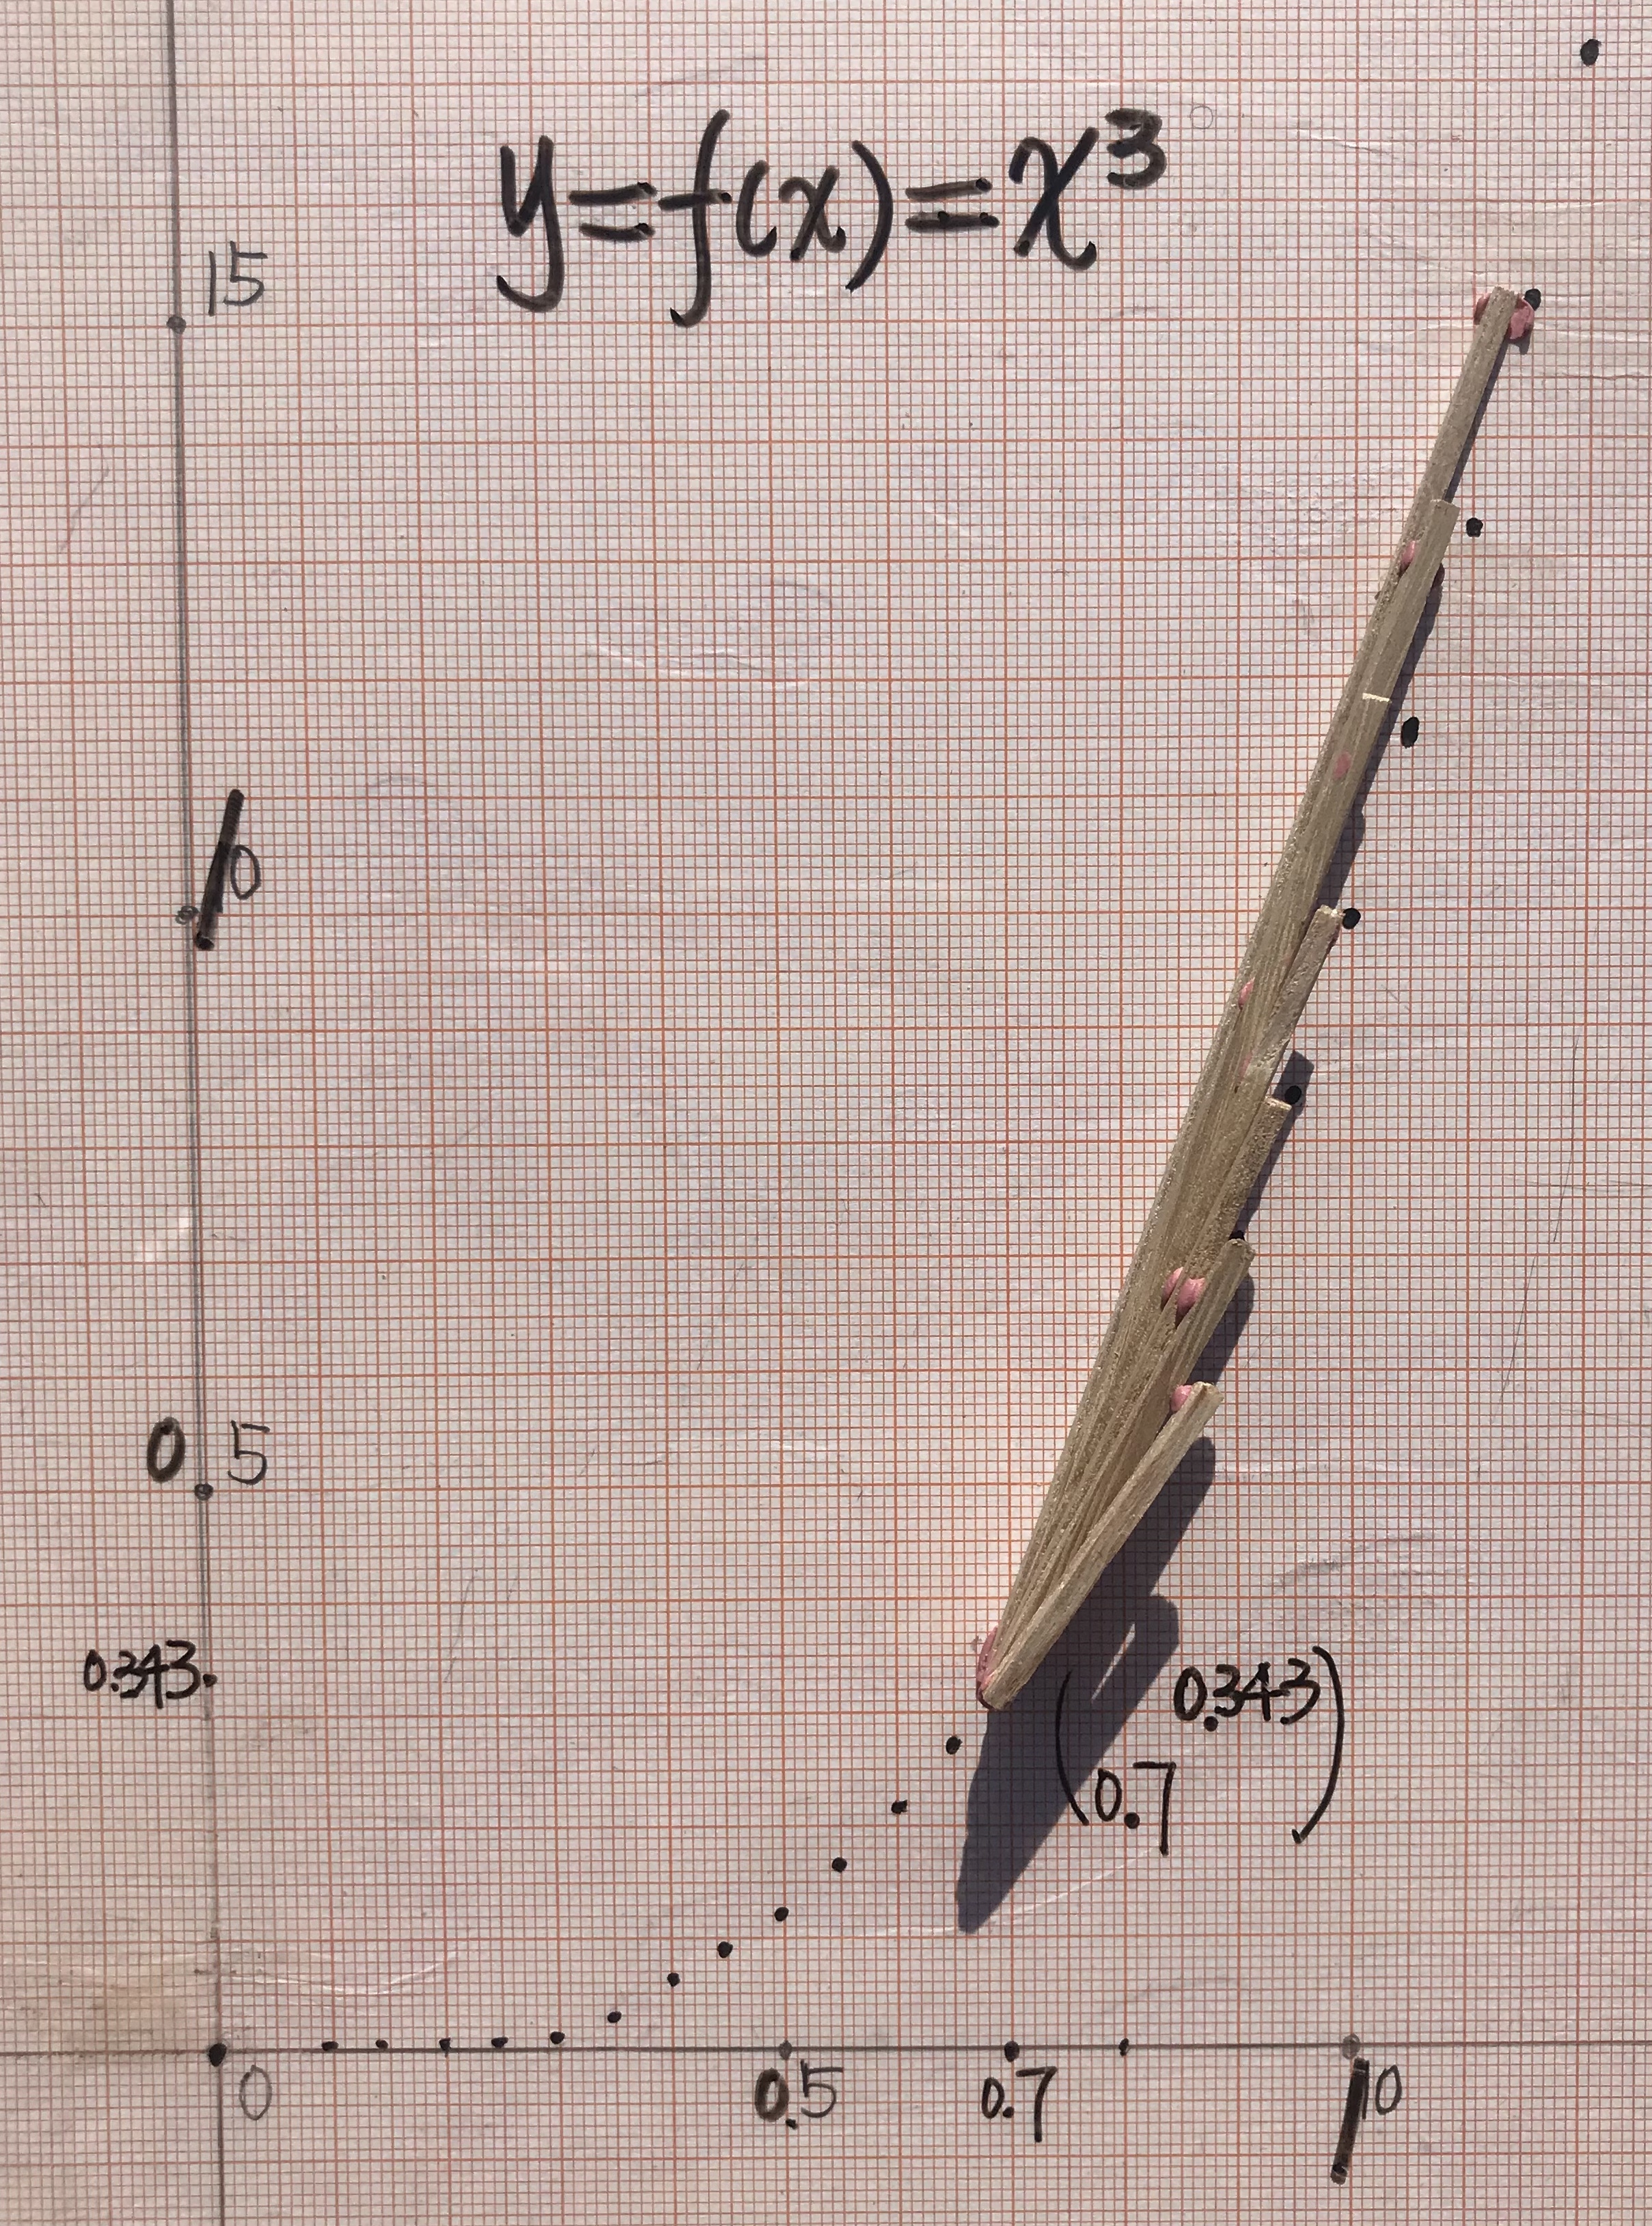 y=f(x)=x³
15
10
0.5
0.343
(0.7 0.343)
0
0.5
0.7
10